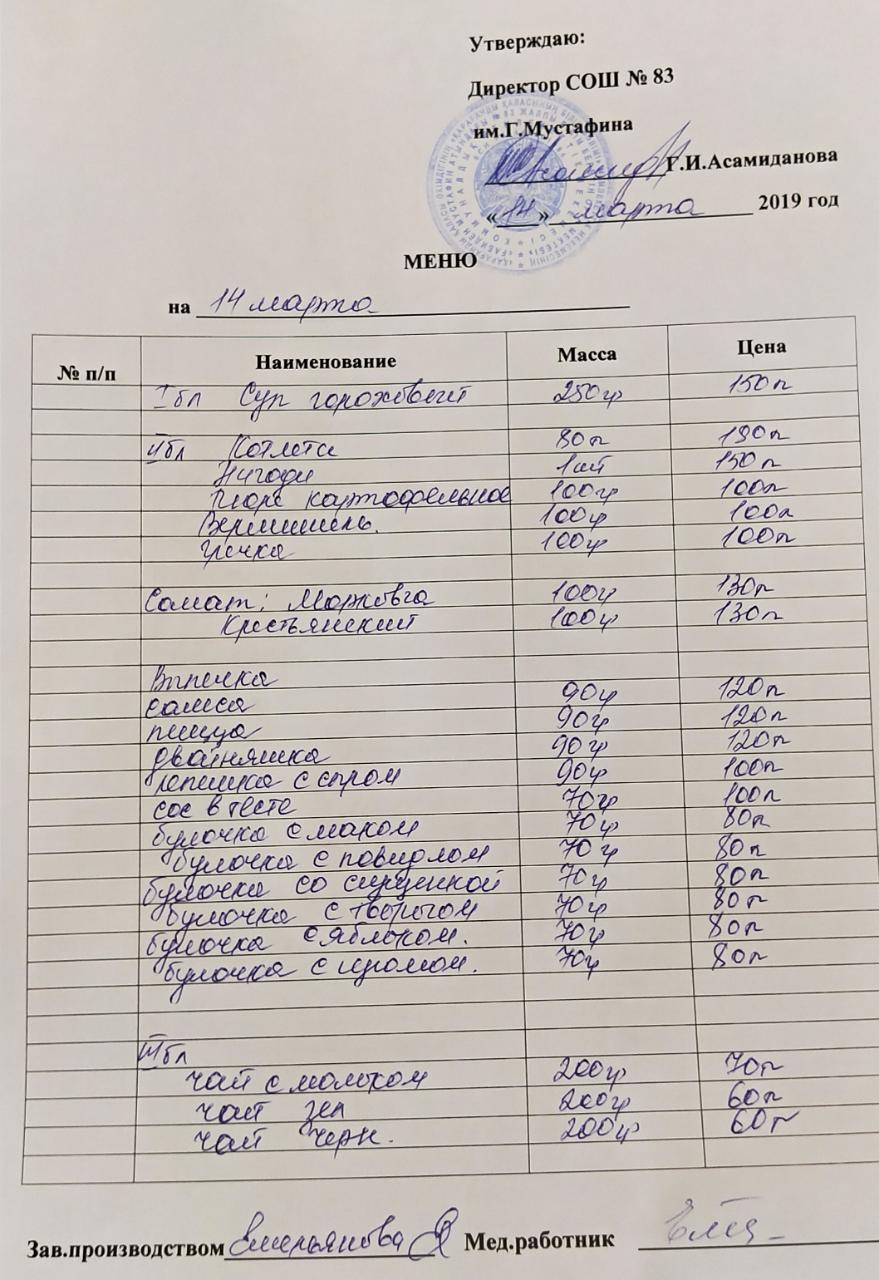 Утверждаю:
Директор СОШ № 83
им.Г.Мустафина
Г.И.Асамиданова
«14» марта 2019 год
МЕНЮ
на 14 марта
№ п/п Наименование Масса Цена
I бл Суп гороховый 250гр 150т
II бл Котлета 80г 190т
Нигоди 1шт 150т
Пюре картофельное 100гр 100т
Вермишель. 100гр 100т
гречка 100гр 100т
Салат: Морковча 100гр 130т
Крестьянский 100гр 130т
Выпечка
самса 90гр 120т
пицца 90гр 120т
двойняшка 90гр 120т
лепешка с сыром 90гр 100т
сос в тесте 70гр 100т
булочка с маком 70гр 80т
булочка с повидлом 70гр 80т
булочка со сгущенкой 70гр 80т
булочка с творогом 70гр 80т
булочка с яблоком. 70гр 80т
булочка с изюмом. 70гр 80т
III бл
чай с молоком 200гр 70т
чай зел 200гр 60т
чай черн. 200гр 60т
Зав.производством Емельянова Мед.работник